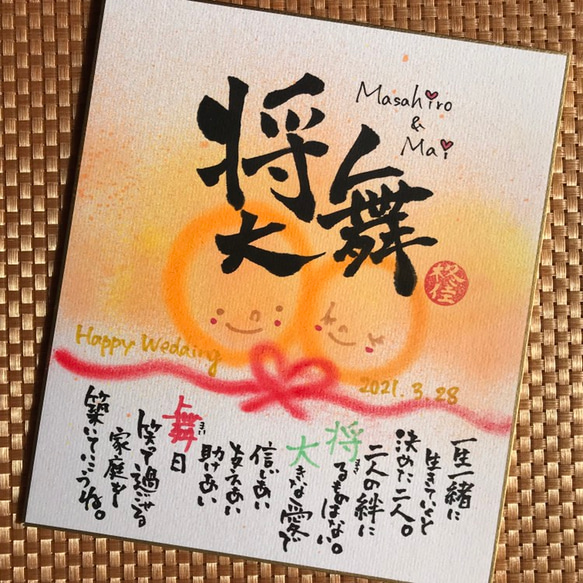 Masahiro
&
Mai
将大
舞
Happy Wedding
2021.3.28
一生一緒に
生きていくと
決めた二人。
二人の絆に
将るものはない。
まさ
大きな愛で
信じあい
支えあい
助けあい
舞日
まい
笑って過ごせる
家庭を
築いていこうね。